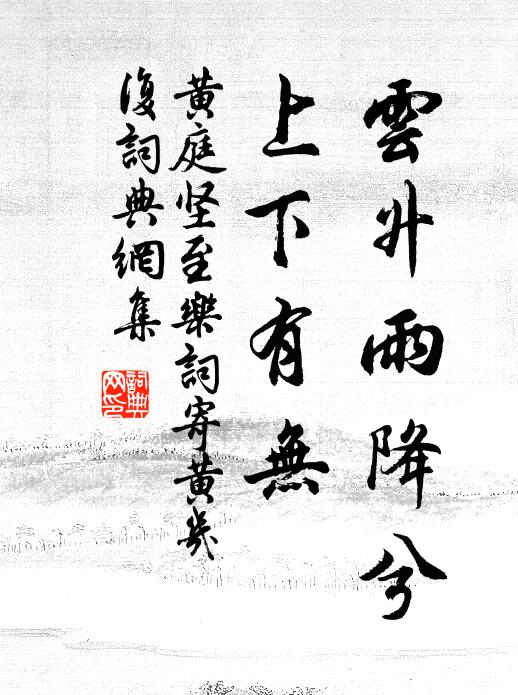 雲升雨降兮
上下有無
黄庭坚至樂詞寄黄幾
復詞典網集
詞典
网印